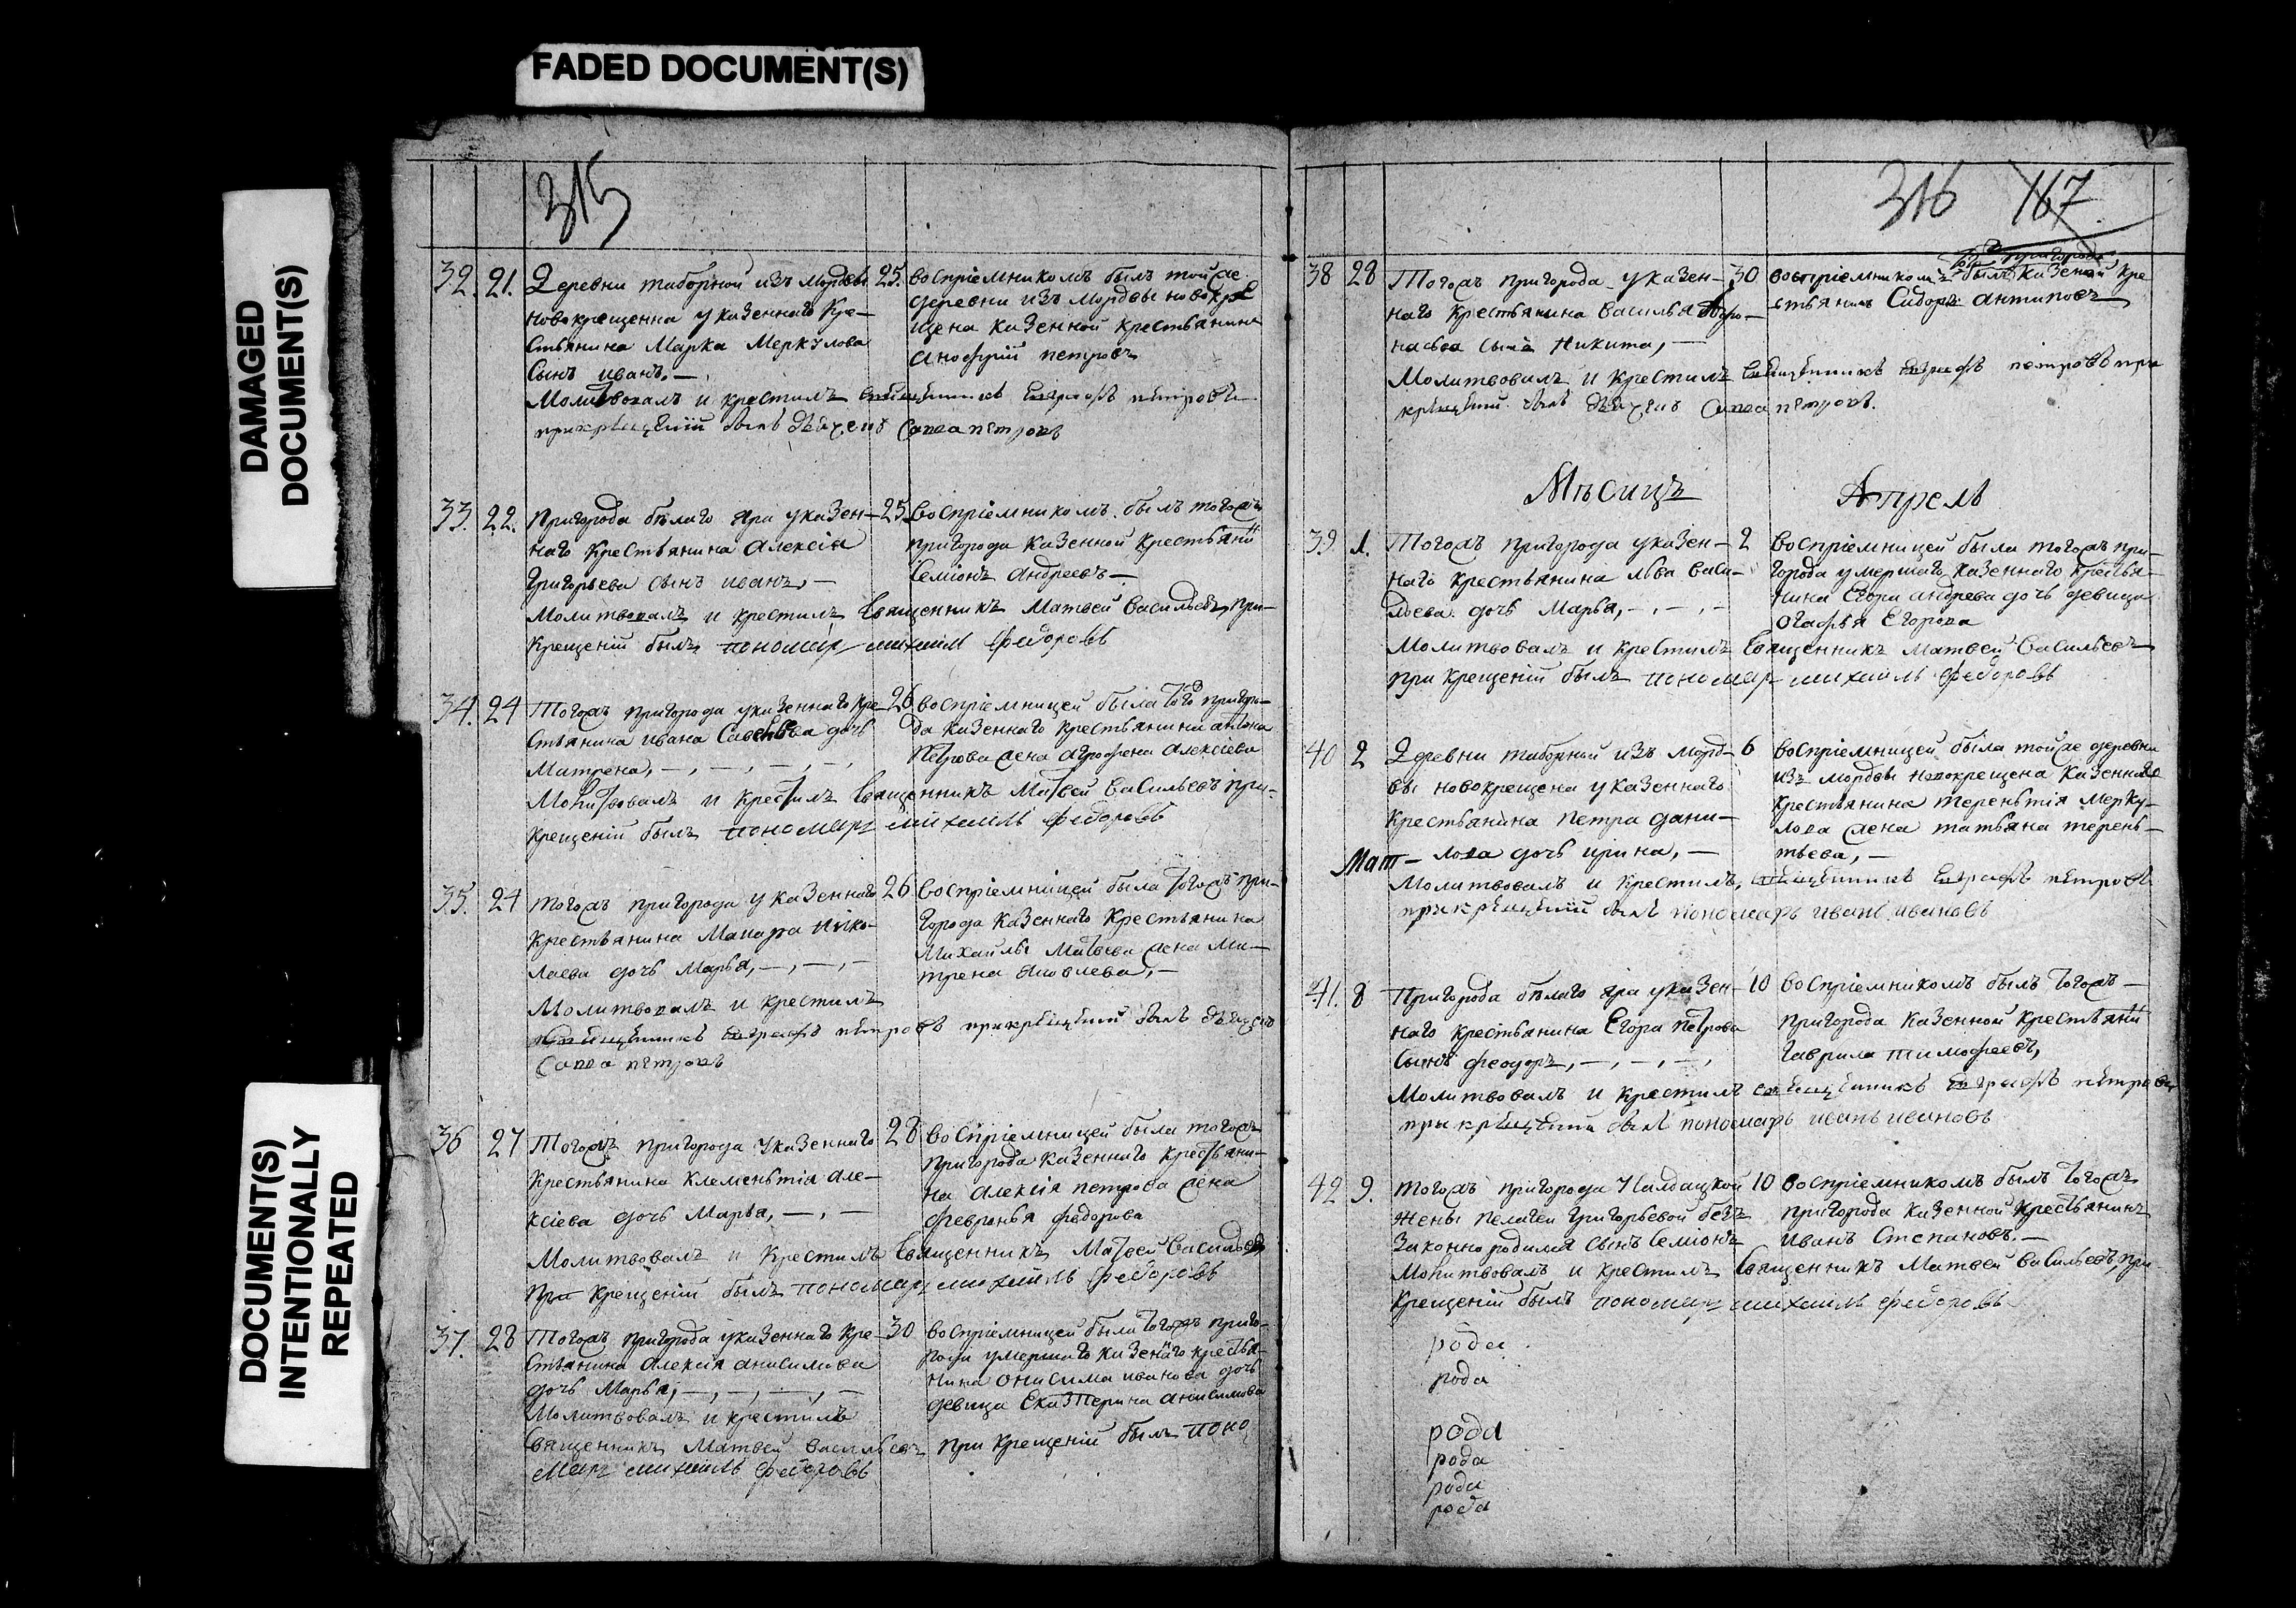 FADED DOCUMENT(S)
DAMAGED
DOCUMENT(S)
DOCUMENT(S)
INTENTIONALLY
REPEATED
315
32. 21. Деревни таборной изъ мордвы
новокрещенна у казеннаго Кре-
стьянина Марка Меркулова
Сынъ иванъ. —
25. воспріемникомъ былъ тойже
деревни изъ мордвы новокре
щена казенной крестьянинъ
анофрій петровъ
Молитвовалъ и крестилъ священникъ Евграфъ петровъ
при крещеніи былъ дьячекъ Савва петровъ
33. 22. Пригорода бѣлаго яра у казен-
наго крестьянина алексія
Григорьева сынъ иванъ, —
25 воспріемникомъ былъ тогожъ
пригорода казенной крестьянинъ
Семіонъ андреевъ —
Молитвовалъ и крестилъ Священникъ Матвей Васильевъ, при-
крещеній былъ пономарь михаилъ федоровъ
34. 24 Тогожъ пригорода у казеннаго кре-
стьянина ивана дочь
Матрена, —, —, —, —,
26 воспріемницей была того приго-
да казеннаго крестьянина антона
Петрова жена Агрофена Алексіева
Молитвовалъ и крестилъ Священникъ Матвей Васильевъ при-
крещеній былъ пономарь михаилъ федоровъ
35. 24 Тогожъ пригорода у казеннаго
крестьянина Макара Нико-
лаева дочь Марья, —, —, —
26 воспріемницей была тогожъ при-
города казеннаго крестьянина
Михайлы Матвева жена Ма-
трена Яковлева, —
Молитвовалъ и крестилъ
священникъ Евграфъ петровъ при крещеніи былъ дьячекъ
Савва петровъ
36 27 Тогожъ пригорода у казеннаго
крестьянина Клеменьтія але-
ксіева дочь Марья, —, —
28 воспріемницей была тогожъ
пригорода казеннаго крестьяни-
на алексія петрова жена
февронья федорова
Молитвовалъ и крестилъ Священникъ Матвей Васильевъ
При крещеніи былъ пономарь михаилъ федоровъ
37. 28 Тогожъ пригорода у казеннаго кре-
стьянина алексія анисимова
дочь Марья, —, —, —, —
30 воспріемницей была тогожъ приго-
рода умершаго казеннаго крестья-
нина онисима иванова дочь
девица Екатерина анисимова
Молитвовалъ и крестилъ
Священникъ Матвей Васильевъ при крещеній былъ поно
марь михаилъ федоровъ
316 167
38 28 Тогожъ пригорода у казен-
наго крестьянина Василья
сынъ Никита, —
30 воспріемникомъ былъ казеной кре
стьянинъ Сидоръ антиповъ
Молитвовалъ и крестилъ священникъ Евграфъ петровъ при
крещеніи былъ дьячекъ Савва петровъ.
Мѣсяцъ Апрель
39 1. Тогожъ пригорода у казен-
наго крестьянина льва Васи-
льева дочь Марья, —, —, —
2 воспріемницей была тогожъ при-
города умершаго казеннаго крестья-
нина Егора андрева дочь девица
огафья Егорова
Молитвовалъ и крестилъ Священникъ Матвей Васильевъ
при крещеній былъ пономарь михаилъ федоровъ
40 2 Деревни таборной изъ морд-
вы новокрещена у казеннаго
крестьянина петра дани-
лова дочь ирина, —
6 воспріемницей была тойже деревни
изъ мордвы новокрещена казеннаго
крестьянина тереньтія мерку-
лова жена татьяна терень-
тьева, —
Мат-
Молитвовалъ и крестилъ, священникъ Евграфъ петровъ
при крещеніи былъ пономарь иванъ ивановъ
41. 8 Пригорода бѣлаго яра у казен-
наго крестьянина Егора петрова
Сынъ феодоръ, —, —, —,
10 воспріемникомъ былъ тогожъ —
пригорода казенной крестьянинъ
гаврила тимофеевъ,
Молитвовалъ и крестилъ священникъ Евграфъ петровъ
при крещеніи былъ пономарь иванъ ивановъ
42 9. Тогожъ пригорода у салдацкой
жены пелагеи Григорьевой безъ
законно родился сынъ Семіонъ
10 воспріемникомъ былъ тогожъ
пригорода казенной крестьянинъ
иванъ Степановъ. —
Молитвовалъ и крестилъ Священникъ Матвей Васильевъ, при
крещеній былъ пономарь михаилъ федоровъ
рода
рода
рода
рода
рода
рода